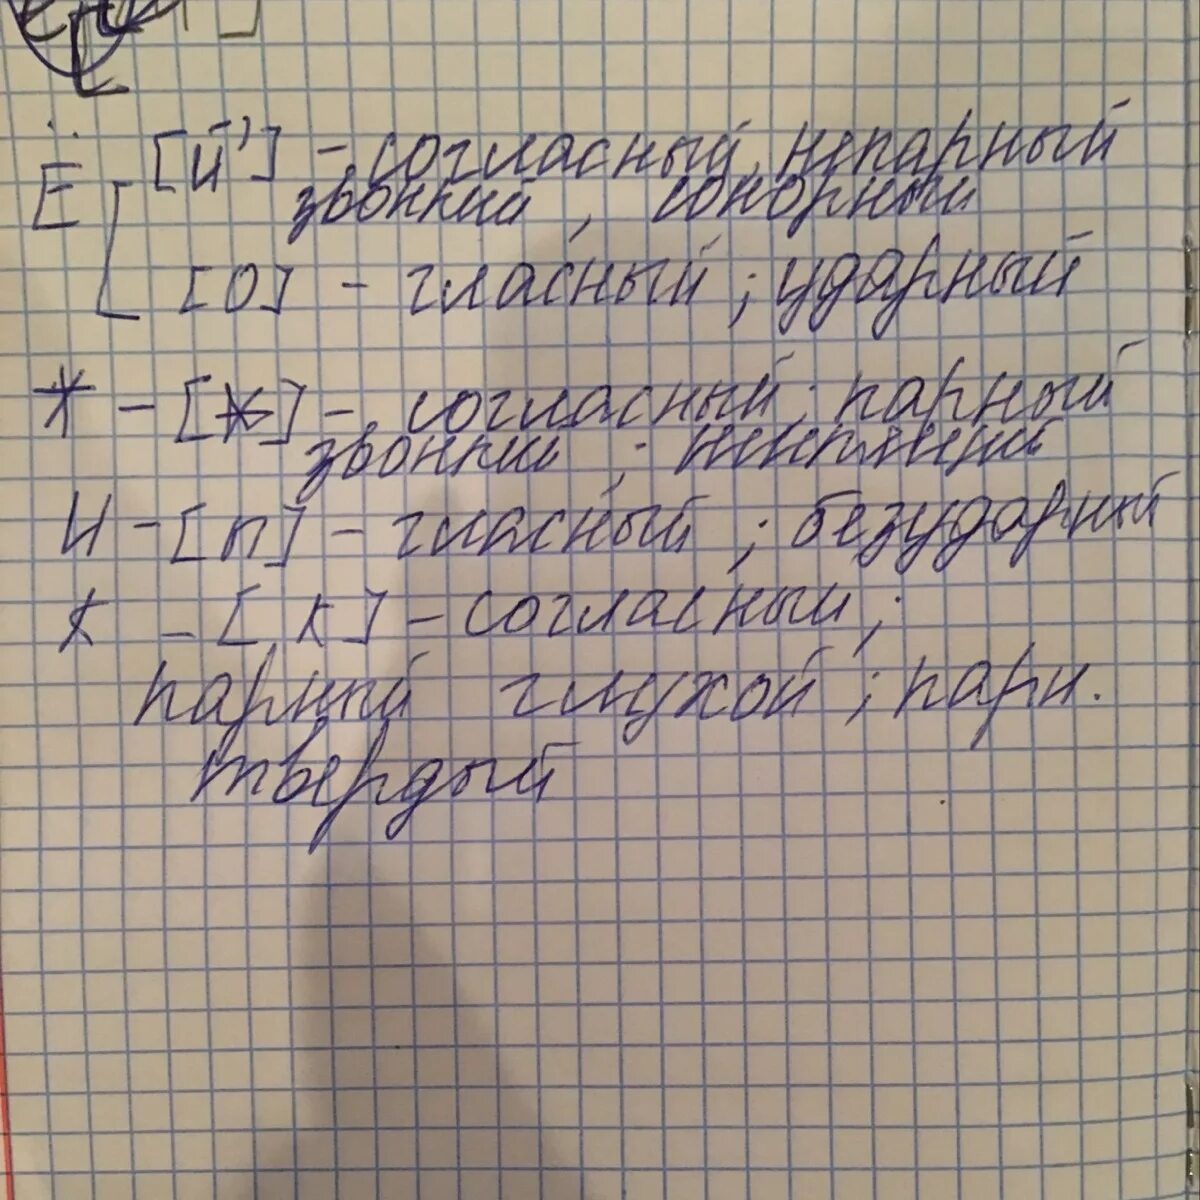 Ё [й'] - согласный, непарный
звонкий, сонорный
[о] - гласный; ударный
Ж - [ж] - согласный; парный
звонкий;
И - [и] - гласный; безударный
К - [к] - согласный;
парный глухой; парн.
твердый